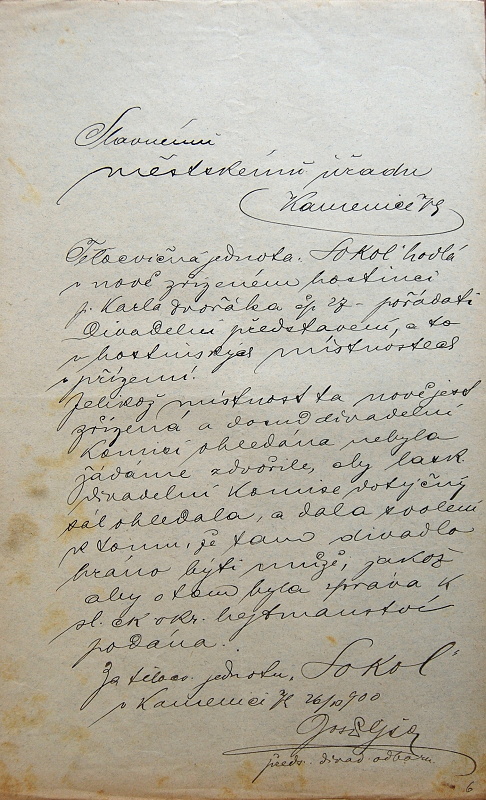 Slavnému
městskému úřadu
Kamenice
Tělocvičná jednota „Sokol" hodlá
v nově zřízeném hostinci
p. Karla Dvořáka čp 27 - pořádati
Divadelní představení, a to
v hostinských místnostech
v přízemí.
Jelikož místnost ta nově jest
zřízená a dosud divadelní
komisí ohledána nebyla
žádáme zdvořile, aby lask.
divadelní komise dotyčný
sál ohledala, a dala svolení
k tomu, že tam divadlo
hráno býti může, jakož
aby o tom byla zpráva k
sl. ck okr. hejtmanství
podána.
Za tělocv. jednotu „Sokol"
v Kamenici 1900
předs. divad. odboru.
6